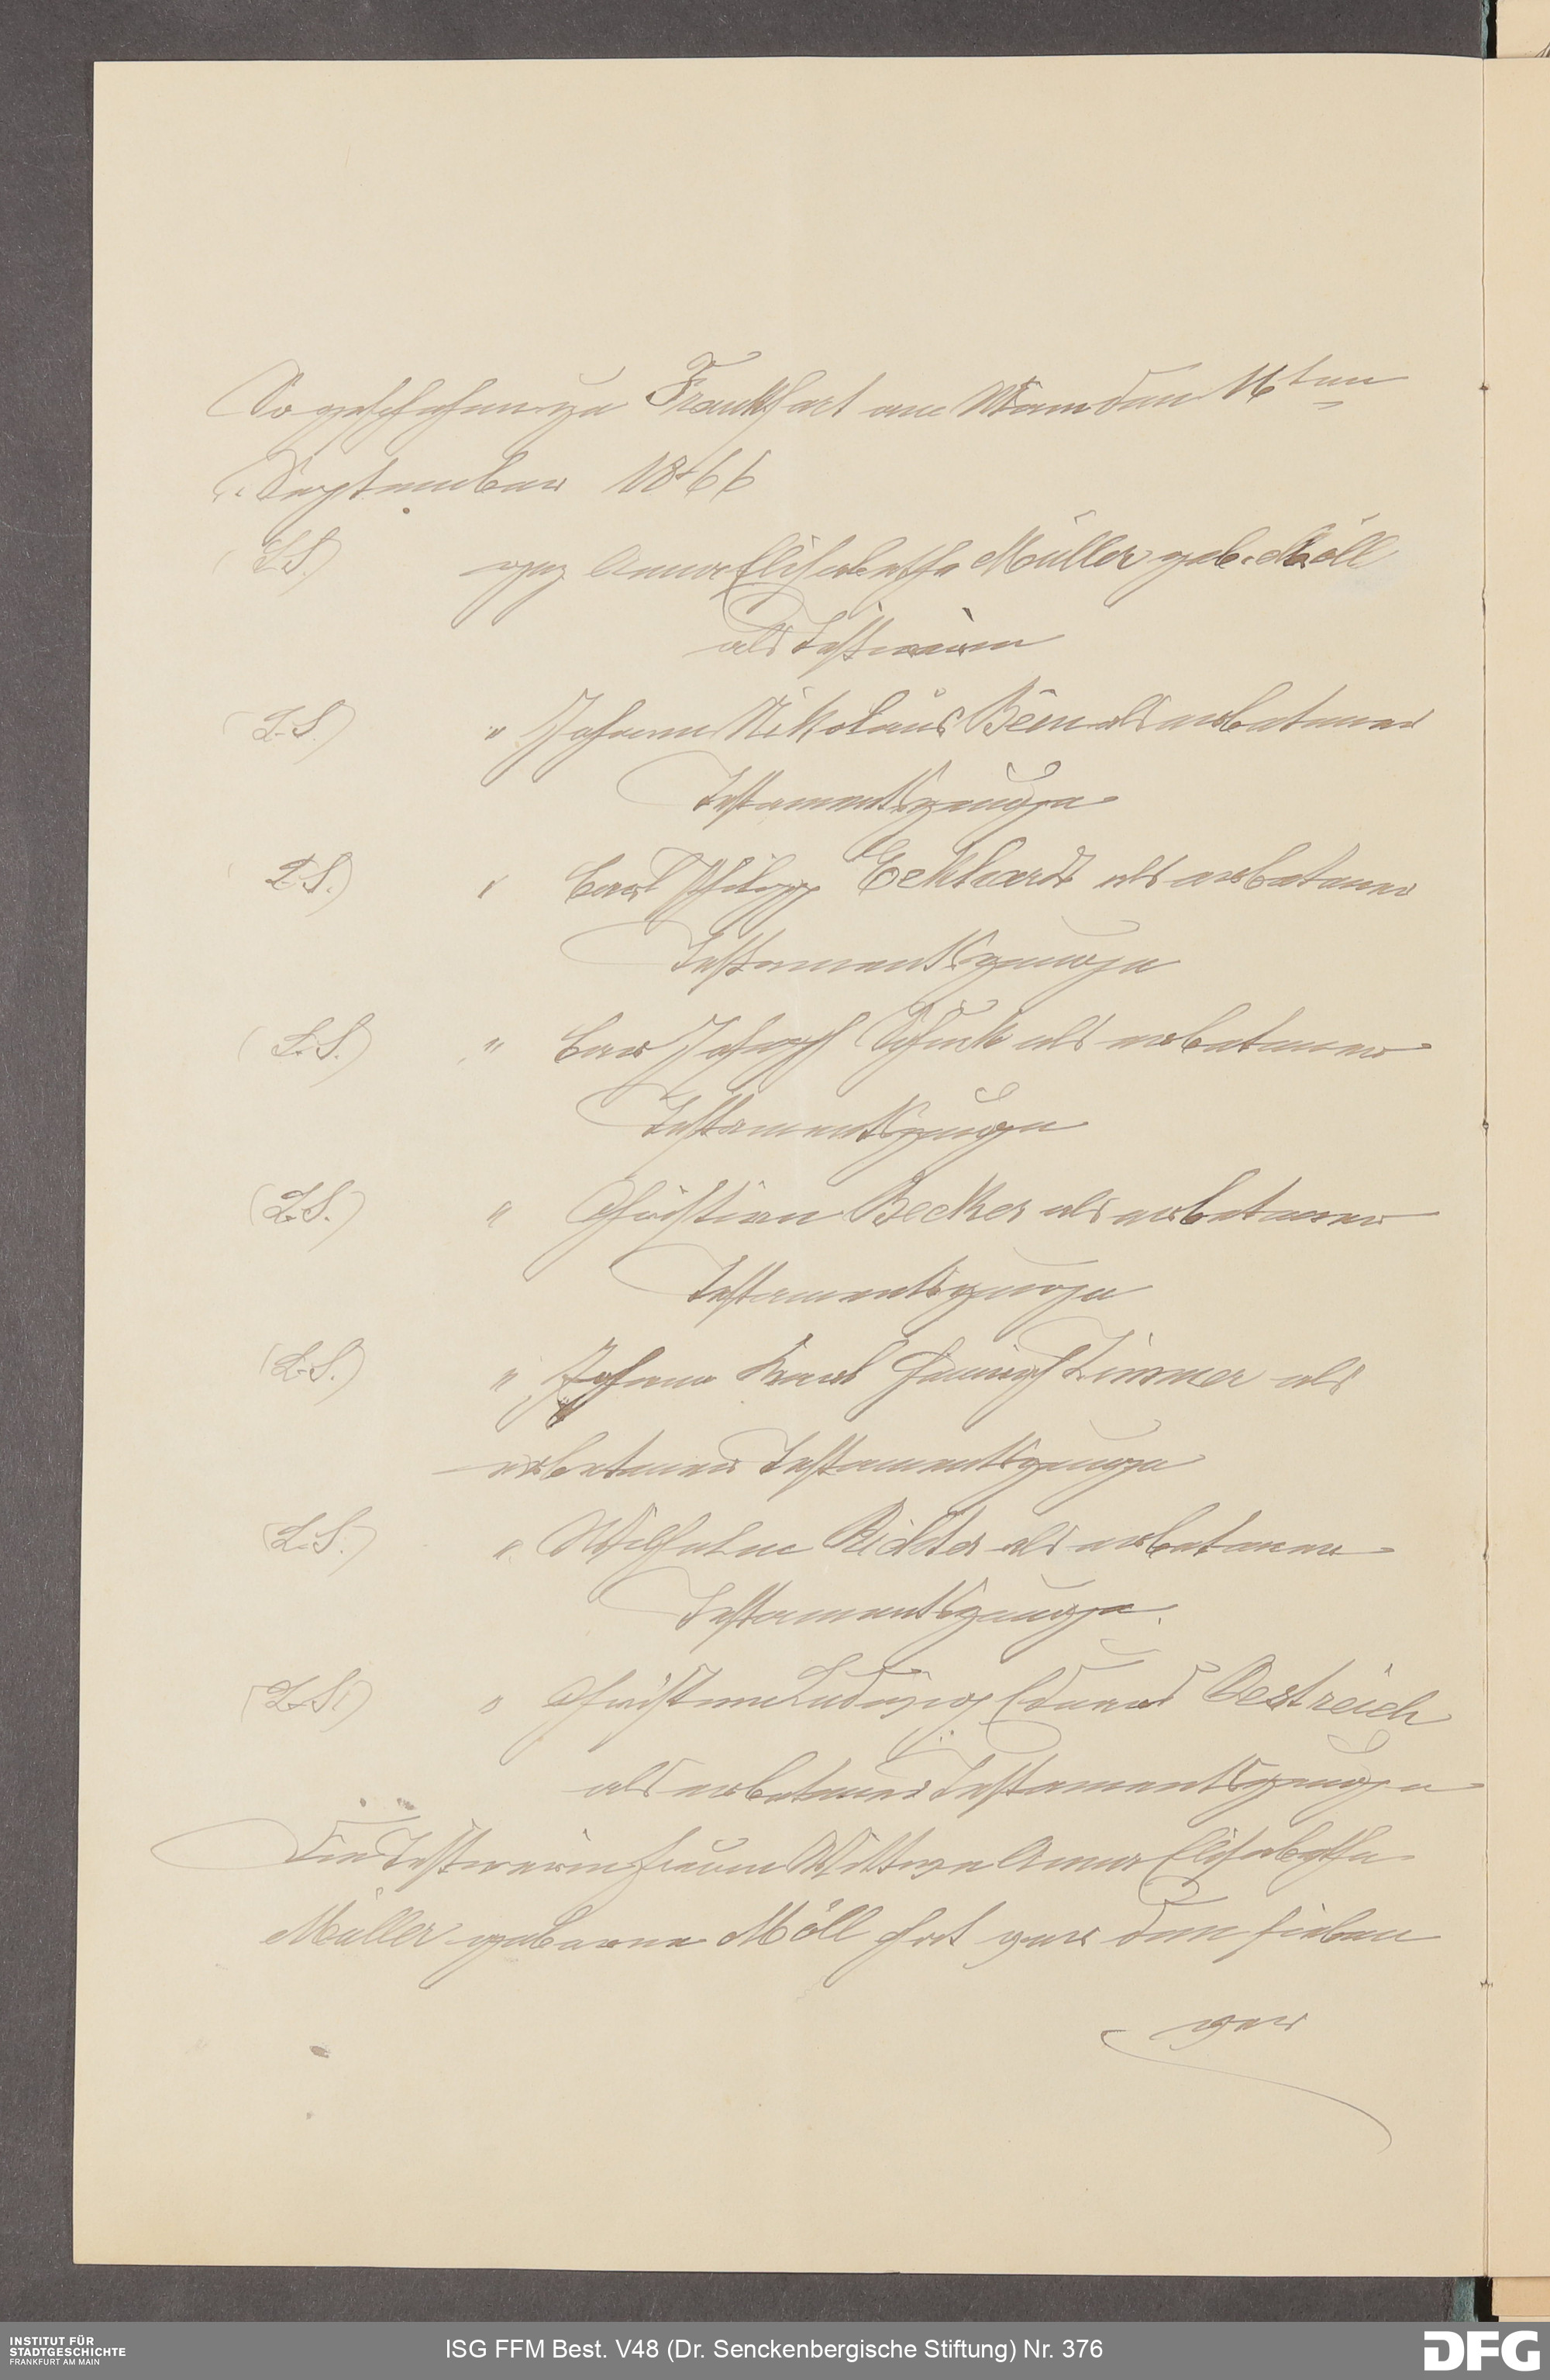 So geschehen zu Frankfurt am Main den 16ten
September 1866
(L.S.) gez Anna Elisabetha Müller geb. Möll
als Testirerin
(L.S.) " Johann Nikolaus Bein als erbetener
Testamentszeuge
(L.S.) " Carl Philipp Eckhardt als erbetener
Testamentszeuge
(L.S.) " Carl Joseph Schuck als erbetener
Testamentszeuge
(L.S.) " Christian Becker als erbetener
Testamentszeuge
(L.S.) " Johann Karl Heinrich Zimmer als
erbetener Testamentszeuge
(L.S.) " Wilhelm Richter als erbetener
Testamentszeuge.
(L.S.) " Christian Ludwig Eduard Oestreich
als erbetener Testamentszeuge
Die Testirerin Frau Wittwe Anna Elisabetha
Müller geborene Möll hat vor den sieben
vor
INSTITUT FÜR
STADTGESCHICHTE
FRANKFURT AM MAIN
ISG FFM Best. V48 (Dr. Senckenbergische Stiftung) Nr. 376
DFG